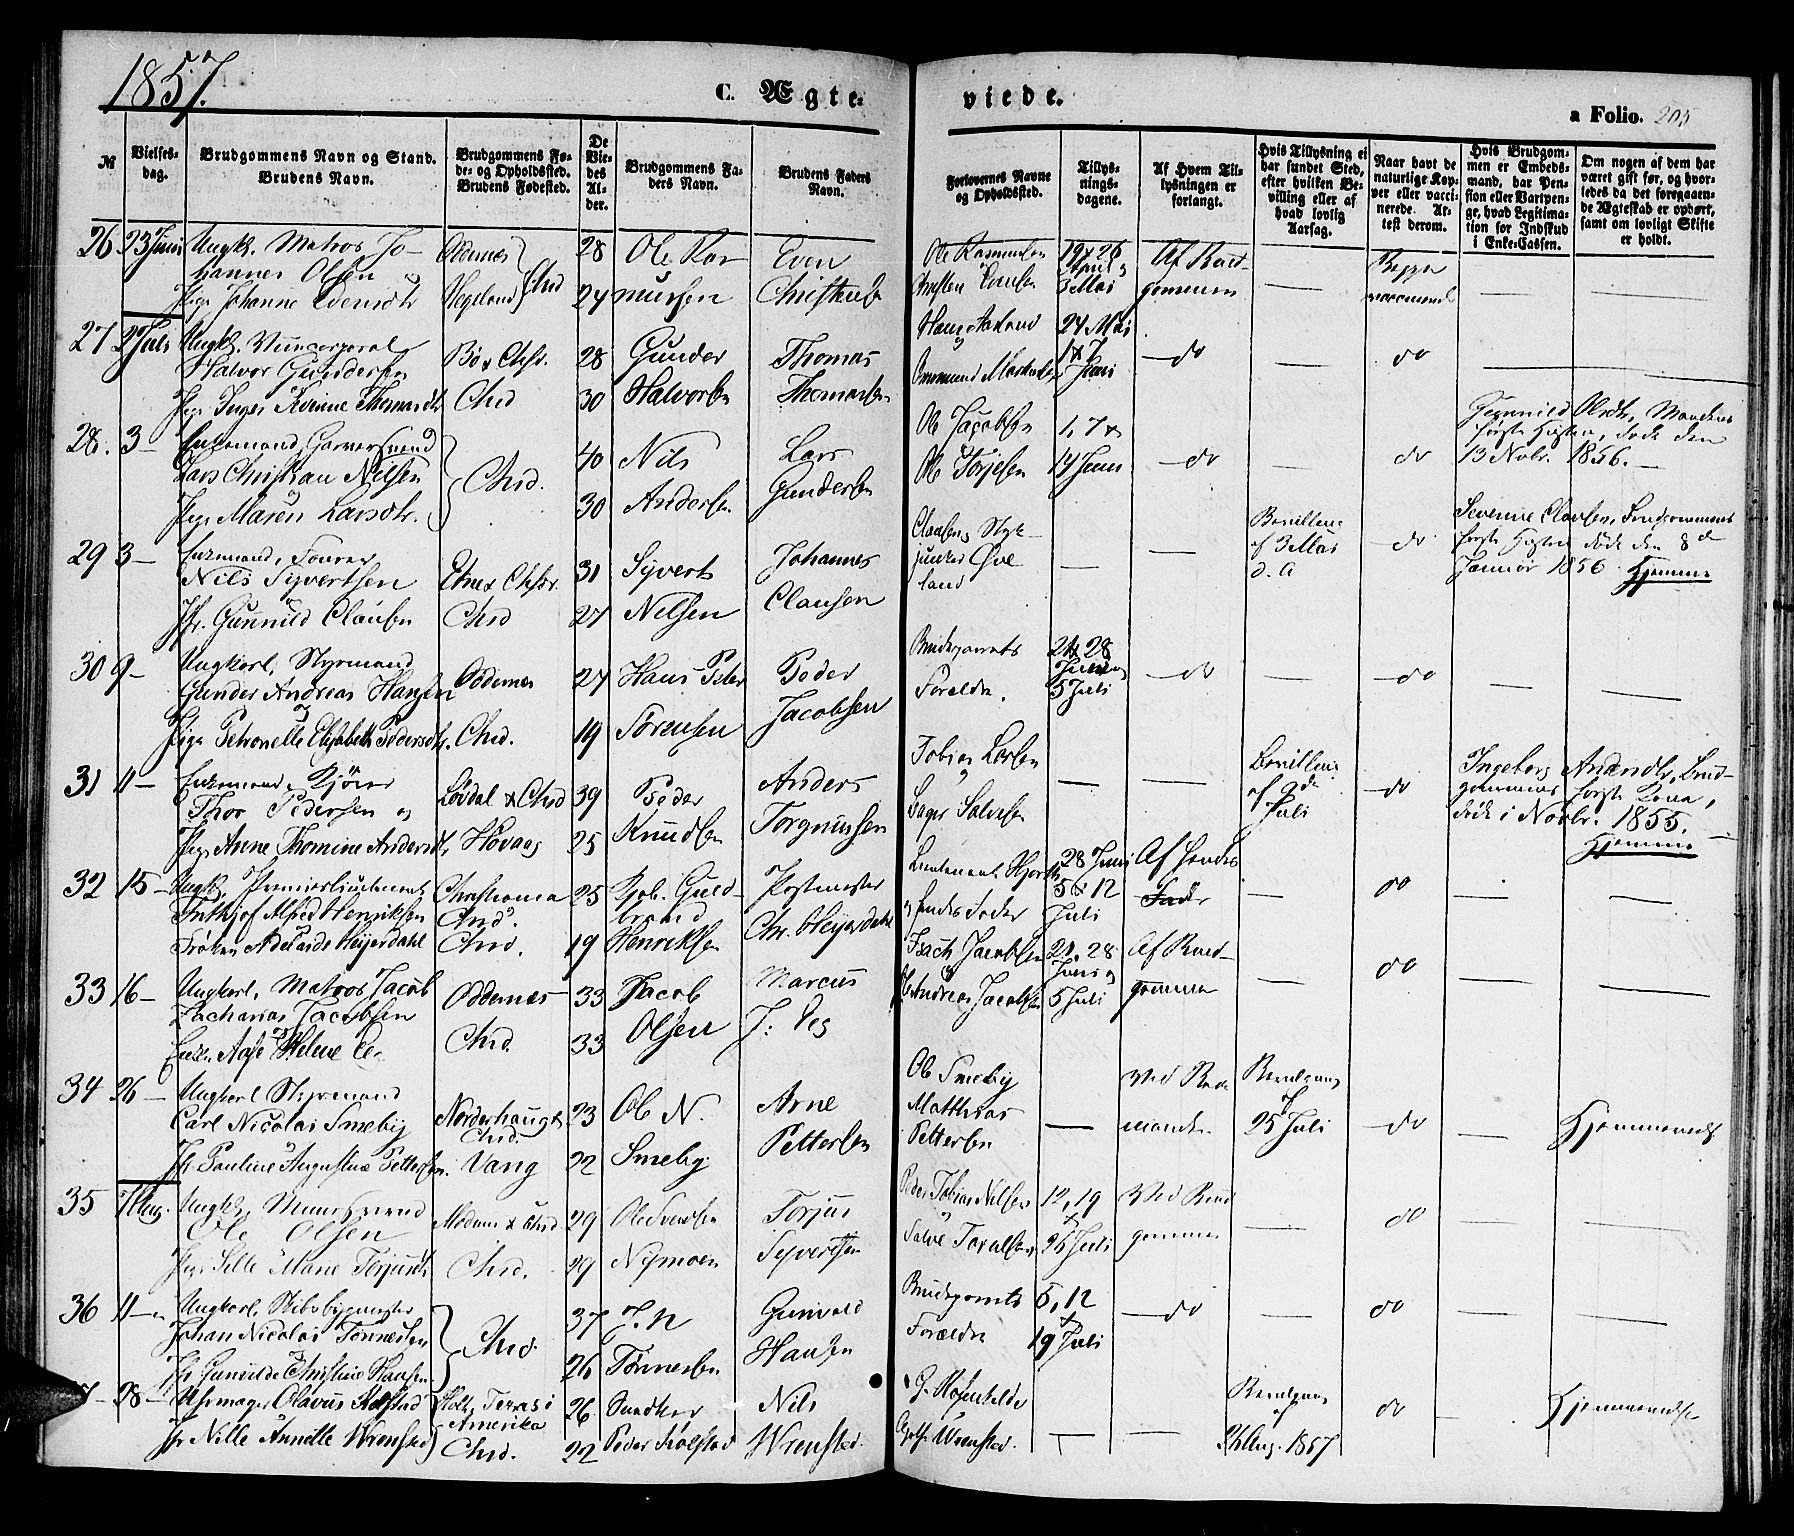 1857.
C. Ægte-
viede.
a Folio. 205
№
Vielses-
dag.
Brudgommens Navn og Stand.
Brudens Navn.
Brudgommens Fø-
de- og Opholdssted.
Brudens Fødested.
De
Vie-
des
Al-
der.
Brudgommens Fa-
ders Navn.
Brudens Faders
Navn.
Forlovernes Navne
og Opholdssted.
Tillys-
nings-
dagene.
Af Hvem Til-
lysningen er
forlangt.
Hvis Tillysning ei
har fundet Sted,
efter hvilken Be-
villing eller af
hvad lovlig
Aarsag.
Naar havt de
naturlige Kop-
per eller vacci-
nerede. At-
test derom.
Hvis Brudgom-
men er Embeds-
mand, har Pen-
sion eller Vartpen-
ge, hvad Legitima-
tion for Indskud
i Enke-Cassen.
Om nogen af dem har
været gift før, og hvor-
ledes da det foregaaen-
de Ægteskab er ophørt,
samt om lovligt Skifte
er holdt.
26 23 Juni Ungk. Matros Jo-
hannes Olsen og
Pige Johanne Evensdtr
Oddernes
Vegeland Chsd
28
24
Ole Ras-
mussen
Even
Christensen
Ole Rasmussen
Christen Evensen
19 & 26
April og
3 Mai
Af Brud-
gommen
Begge
27 2 Juli Ungk. Undercorporal
Halvor Gundersen
Pige Inger Thomasdtr
Bø & Chsd.
Chsd
28
30
Gunder
Halvorsen
Thomas
Thomassen
Hans Aaland
24 Mai
1 & 7
Juni
— do
do
28. 3 — Enkemand, Garversvend
Lars Christian Nilsen
Pige Maren Larsdtr.
Chsd.
40
30
Nils
Andersen
Lars
Gundersen
Ole Jacobsen
Ole Torjesen
1, 7 &
14 Juni
— do
do
Gunnild Olsdtr, Mandens
første Hustru, døde den
13 Novbr. 1856. —
29 3 — Enkemand,
Nils Syvertsen
Jfr. Gunnild Clausen
Etne & Chsd.
Chsd
31
27
Syvert
Nilsen
Johannes
Clausen
Clausen,
Øve
land
Bevilling
af 3 Mai
d. A
do
Severine Clausen, Brudgommens
første Hustru døde den 8 d
Januar 1856. Hjemme
30 9 — Ungkarl, Styrmand
Gunder Andreas Hansen
Pige Petronelle Elisabeth Pedersdtr.
Oddernes
Chsd.
27
19
Hans Peter
Sørensen
Peder
Jacobsen
Brudeparrets
Foreldre.
21 & 28
Juni og
5 Juli
— do
— do
31 11 — Enkemand,
Thor Pedersen og
Pige Anne Thomine Andersdtr
Løvdal & Chsd
Høvaag
39
25
Peder
Knudsen
Anders
Torgrimsen
Tobias Larsen
Salvesen
Bevilling
af 9 de
Juli
do
Ingeborg Andersdtr, Brud-
gommens første Kone,
døde i Novbr. 1855.
Hjemme
32 15 — Ungk. Premierlieutenant
Frithjof Alfred Henriksen
Frøken Adelaide Heyerdahl
Christiania
Chsd.
Chsd.
25
19
Kjøb. Guld-
brand
Henriksen
Postmester
Chr. Heyerdahl
Lieutenant Hjorth
og hendes Fader
28 Juni
5 & 12
Juli
Af hendes
Fader
do
33 16 — Ungkarl, Matros Jacob
Zacharias Jacobsen
Enke Aase Helene
Oddernes
Chsd.
33
33
Jacob
Olsen
Marcus
J:
Isach Jacobsen
Andreas Jacobsen
21, 28
Juni og
5 Juli
Af Brud-
gommen
do
34 26 — Ungkarl Styrmand
Carl Nicolai Smeby
Jfr Pauline Augustine Pettersen.
Norderhaug &
Chsd.
Vang
23
22
Ole N.
Smeby
Arne
Pettersen
Ole Smeby
Matthias
Pettersen
25 Juli
do
Hjemmeviede
35 7 Aug. Ungk. Muursvend
Ole Olsen
Pige Sille Marie Torjusdtr
Modum & Chsd
Chsd.
29
29
Ole Svendsen
Nejmoen
Torjus
Syvertsen
Peder Tobias Nilsen
12, 19
&
26 Juli
Ved Brud
gommen
do
36 11 — Ungkarl, Skibsbygmester
Johan Nicolai Tønnessen
Jfr Gunnilde Christine Hansen
Chsd.
37
26
J. N
Tønnessen
Gunvald
Hansen
Brudeparrets
Forældre
5, 12
&
19 Juli
— do
do
28 — Uhrmager Olavus Kolstad
Jfr Nille Annette Wrenstad
Texas i
Amerika
Chsd.
26
22
Peder Kolstad
Nils
Wrenstad.
Wrenstad.
Aug. 1857
do
Hjemmeviede